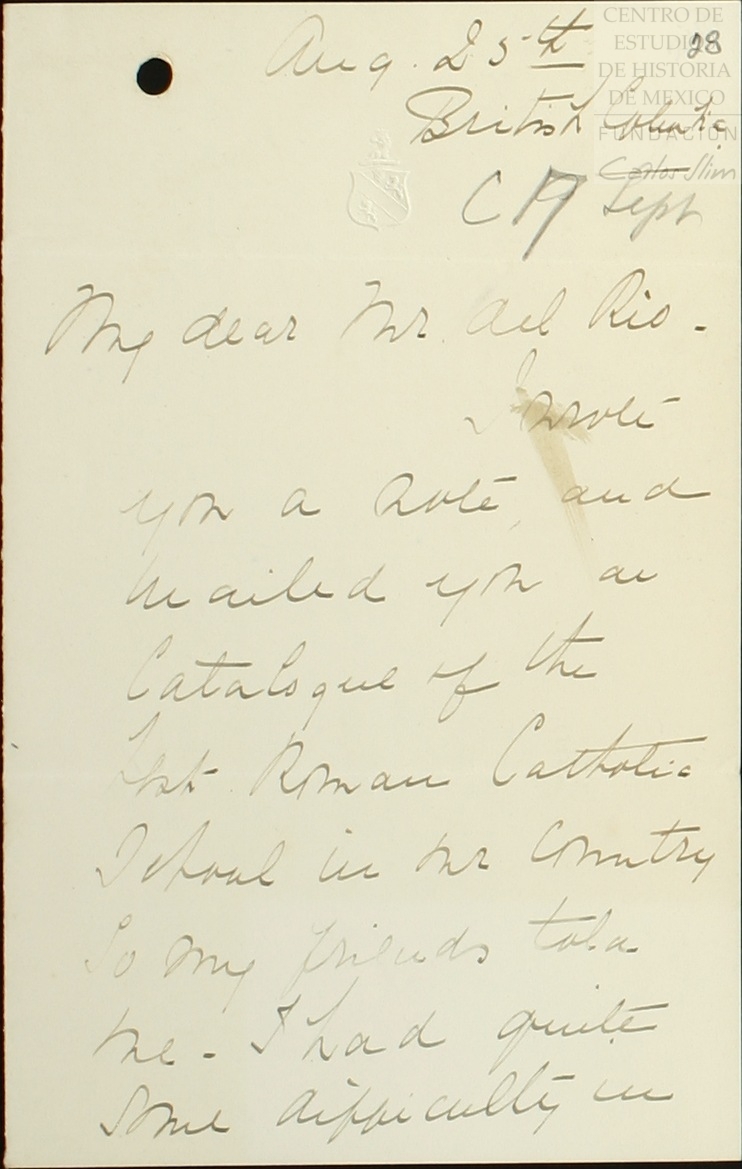 CENTRO DE
ESTUDIOS
DE HISTORIA
DE MEXICO
FUNDACIÓN
Carlos Slim
28
Aug. 25th
British Columbia
C 17 Sept
My dear Mr. del Rio -
I wrote
you a note, and
mailed you a
Catalogue of the
best Roman Catholic
School in our Country
so my friends told
me - I had quite
some difficulty in